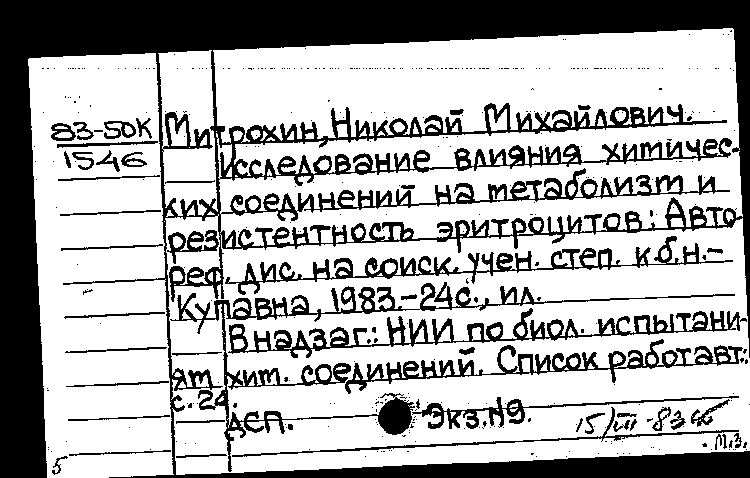 83-50К
1546
Митрохин, Николай Михайлович.
Исследование влияния химичес-
ких соединений на метаболизм и
резистентность эритроцитов: Авто-
реф. дис. на соиск. учен. степ. к.б.н.-
Купавна, 1983.-24с., ил.
В надзаг.: НИИ по биол. испытани-
ям хим. соединений. Список работ авт.:
с. 24.
ДСП. Экз. №9.
15/III-83
М.З.
5